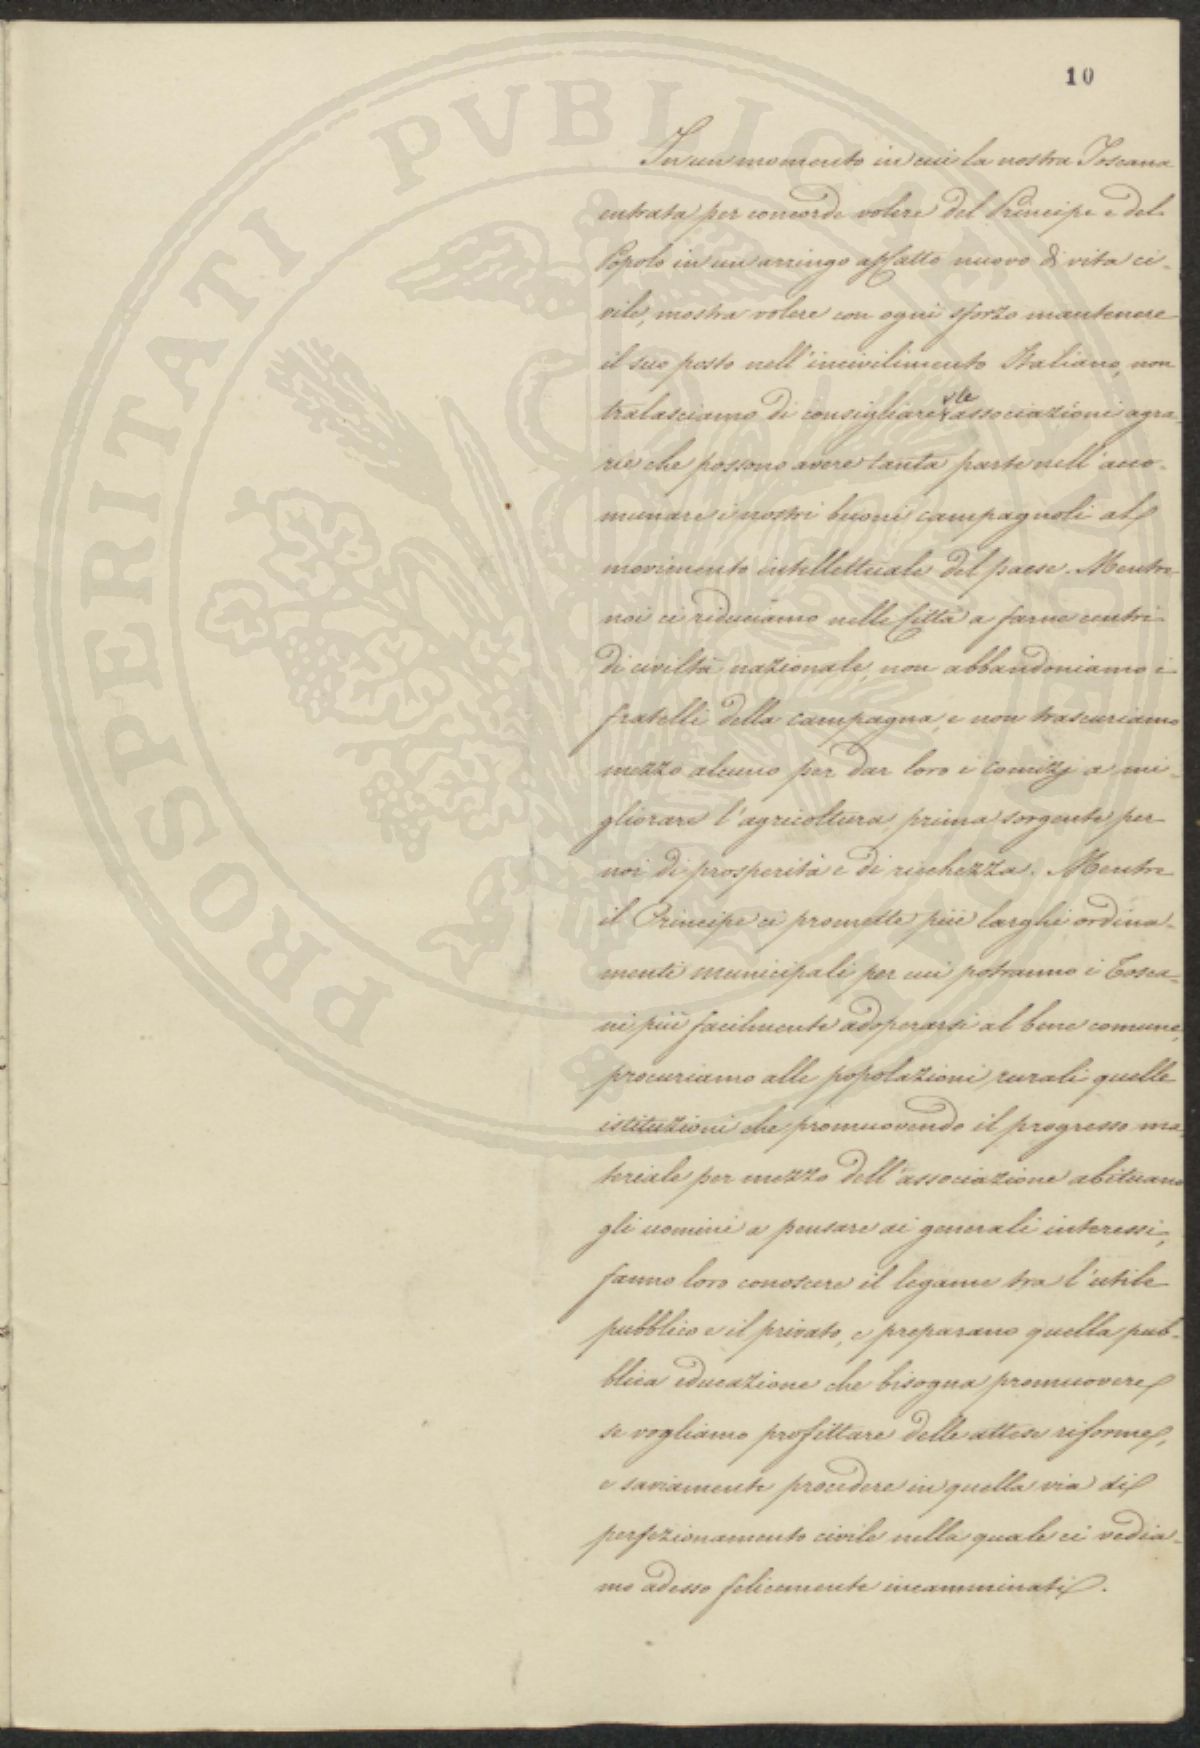 10
In un momento in cui la nostra Toscana
entrata per concorde volere del Principe e del
Popolo in un arringo affatto nuovo di vita ci-
vile, mostra volere con ogni sforzo mantenere
il suo posto nell'incivilimento Italiano, non
tralasciamo di consigliare le associazioni agra-
rie che possono avere tanta parte nell'acco-
munare i nostri buoni campagnoli al
movimento intellettuale del paese. Mentre
noi ci riduciamo nelle Città a farne centri
di civiltà nazionale, non abbandoniamo i
fratelli della campagna, e non trascuriamo
mezzo alcuno per dar loro i comizj a mi-
gliorare l'agricoltura, prima sorgente per
noi di prosperità e di ricchezza. Mentre
il Principe ci promette più larghi ordina-
menti municipali per cui potranno i Tosca-
ni più facilmente adoperarsi al bene comune,
procuriamo alle popolazioni rurali quelle
istituzioni che promuovendo il progresso ma-
teriale per mezzo dell'associazione abituano
gli uomini a pensare ai generali interessi,
fanno loro conoscere il legame tra l'utile
pubblico e il privato, e preparano quella pub-
blica educazione che bisogna promuovere
se vogliamo profittare delle attese riforme,
e saviamente procedere in quella via di
perfezionamento civile nella quale ci vedia-
mo adesso felicemente incamminati.
PROSPERITATI PVBLICAE